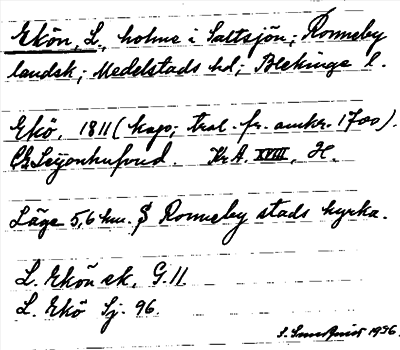 Ekön, L., holme i Saltsjön; Ronneby
landsk; Medelstads hd; Blekinge l.
Ekö, 1811 (kopi; tral. fr. omkr. 1700).
Leijonhufvud. Kr A. XVIII, H.
Läge 5,6 km. S Ronneby stads kyrka.
L. Ekön ek, G.11.
L. Ekö Sj. 96.
1936.